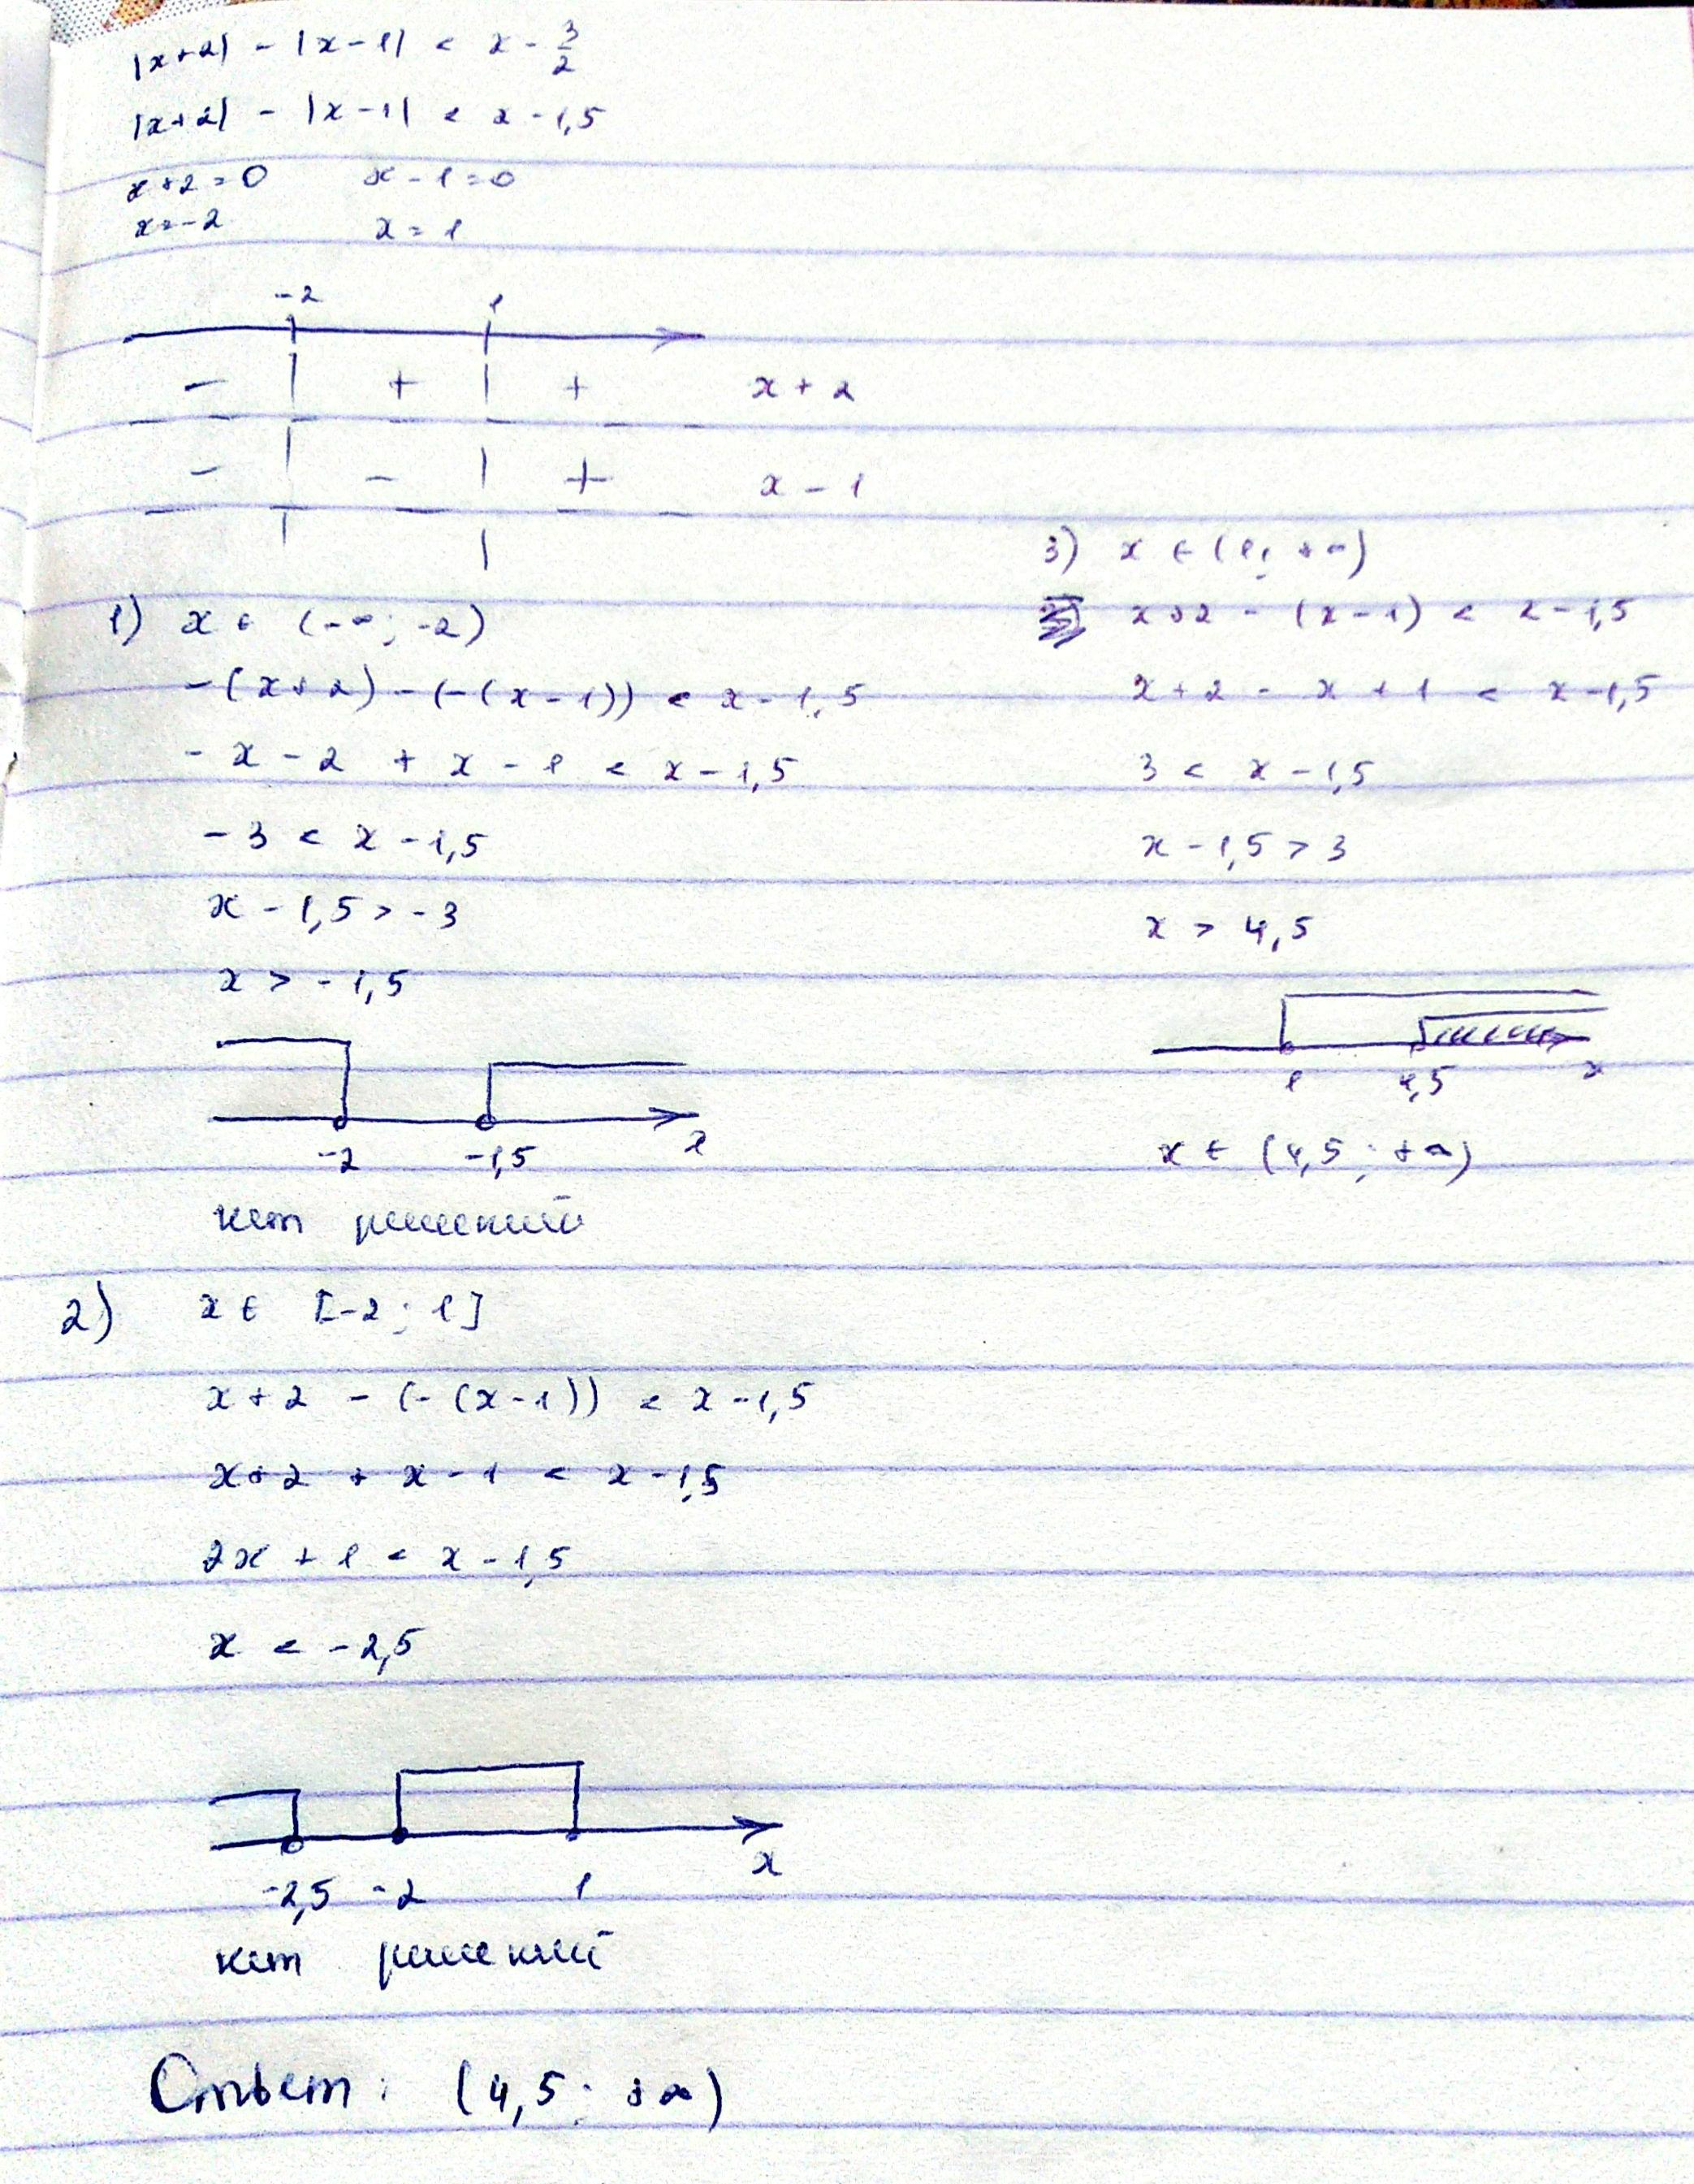 |x+2| - |x-1| < x - 3/2
|x+2| - |x-1| < x - 1,5
x+2=0 x-1=0
x=-2 x=1
-2 1
- + + x+2
- - + x-1
1) x ∈ (-∞; -2)
-(x+2) - (-(x-1)) < x-1,5
-x-2 + x-1 < x-1,5
-3 < x-1,5
x-1,5 > -3
x > -1,5
-2 -1,5 x
нет решений
2) x ∈ [-2; 1]
x+2 - (-(x-1)) < x-1,5
x+2 + x-1 < x-1,5
2x+1 < x-1,5
x < -2,5
-2,5 -2 1 x
нет решений
3) x ∈ (1; +∞)
x+2 - (x-1) < x-1,5
x+2 - x+1 < x-1,5
3 < x-1,5
x-1,5 > 3
x > 4,5
1 4,5 x
x ∈ (4,5; +∞)
Ответ: (4,5; +∞)